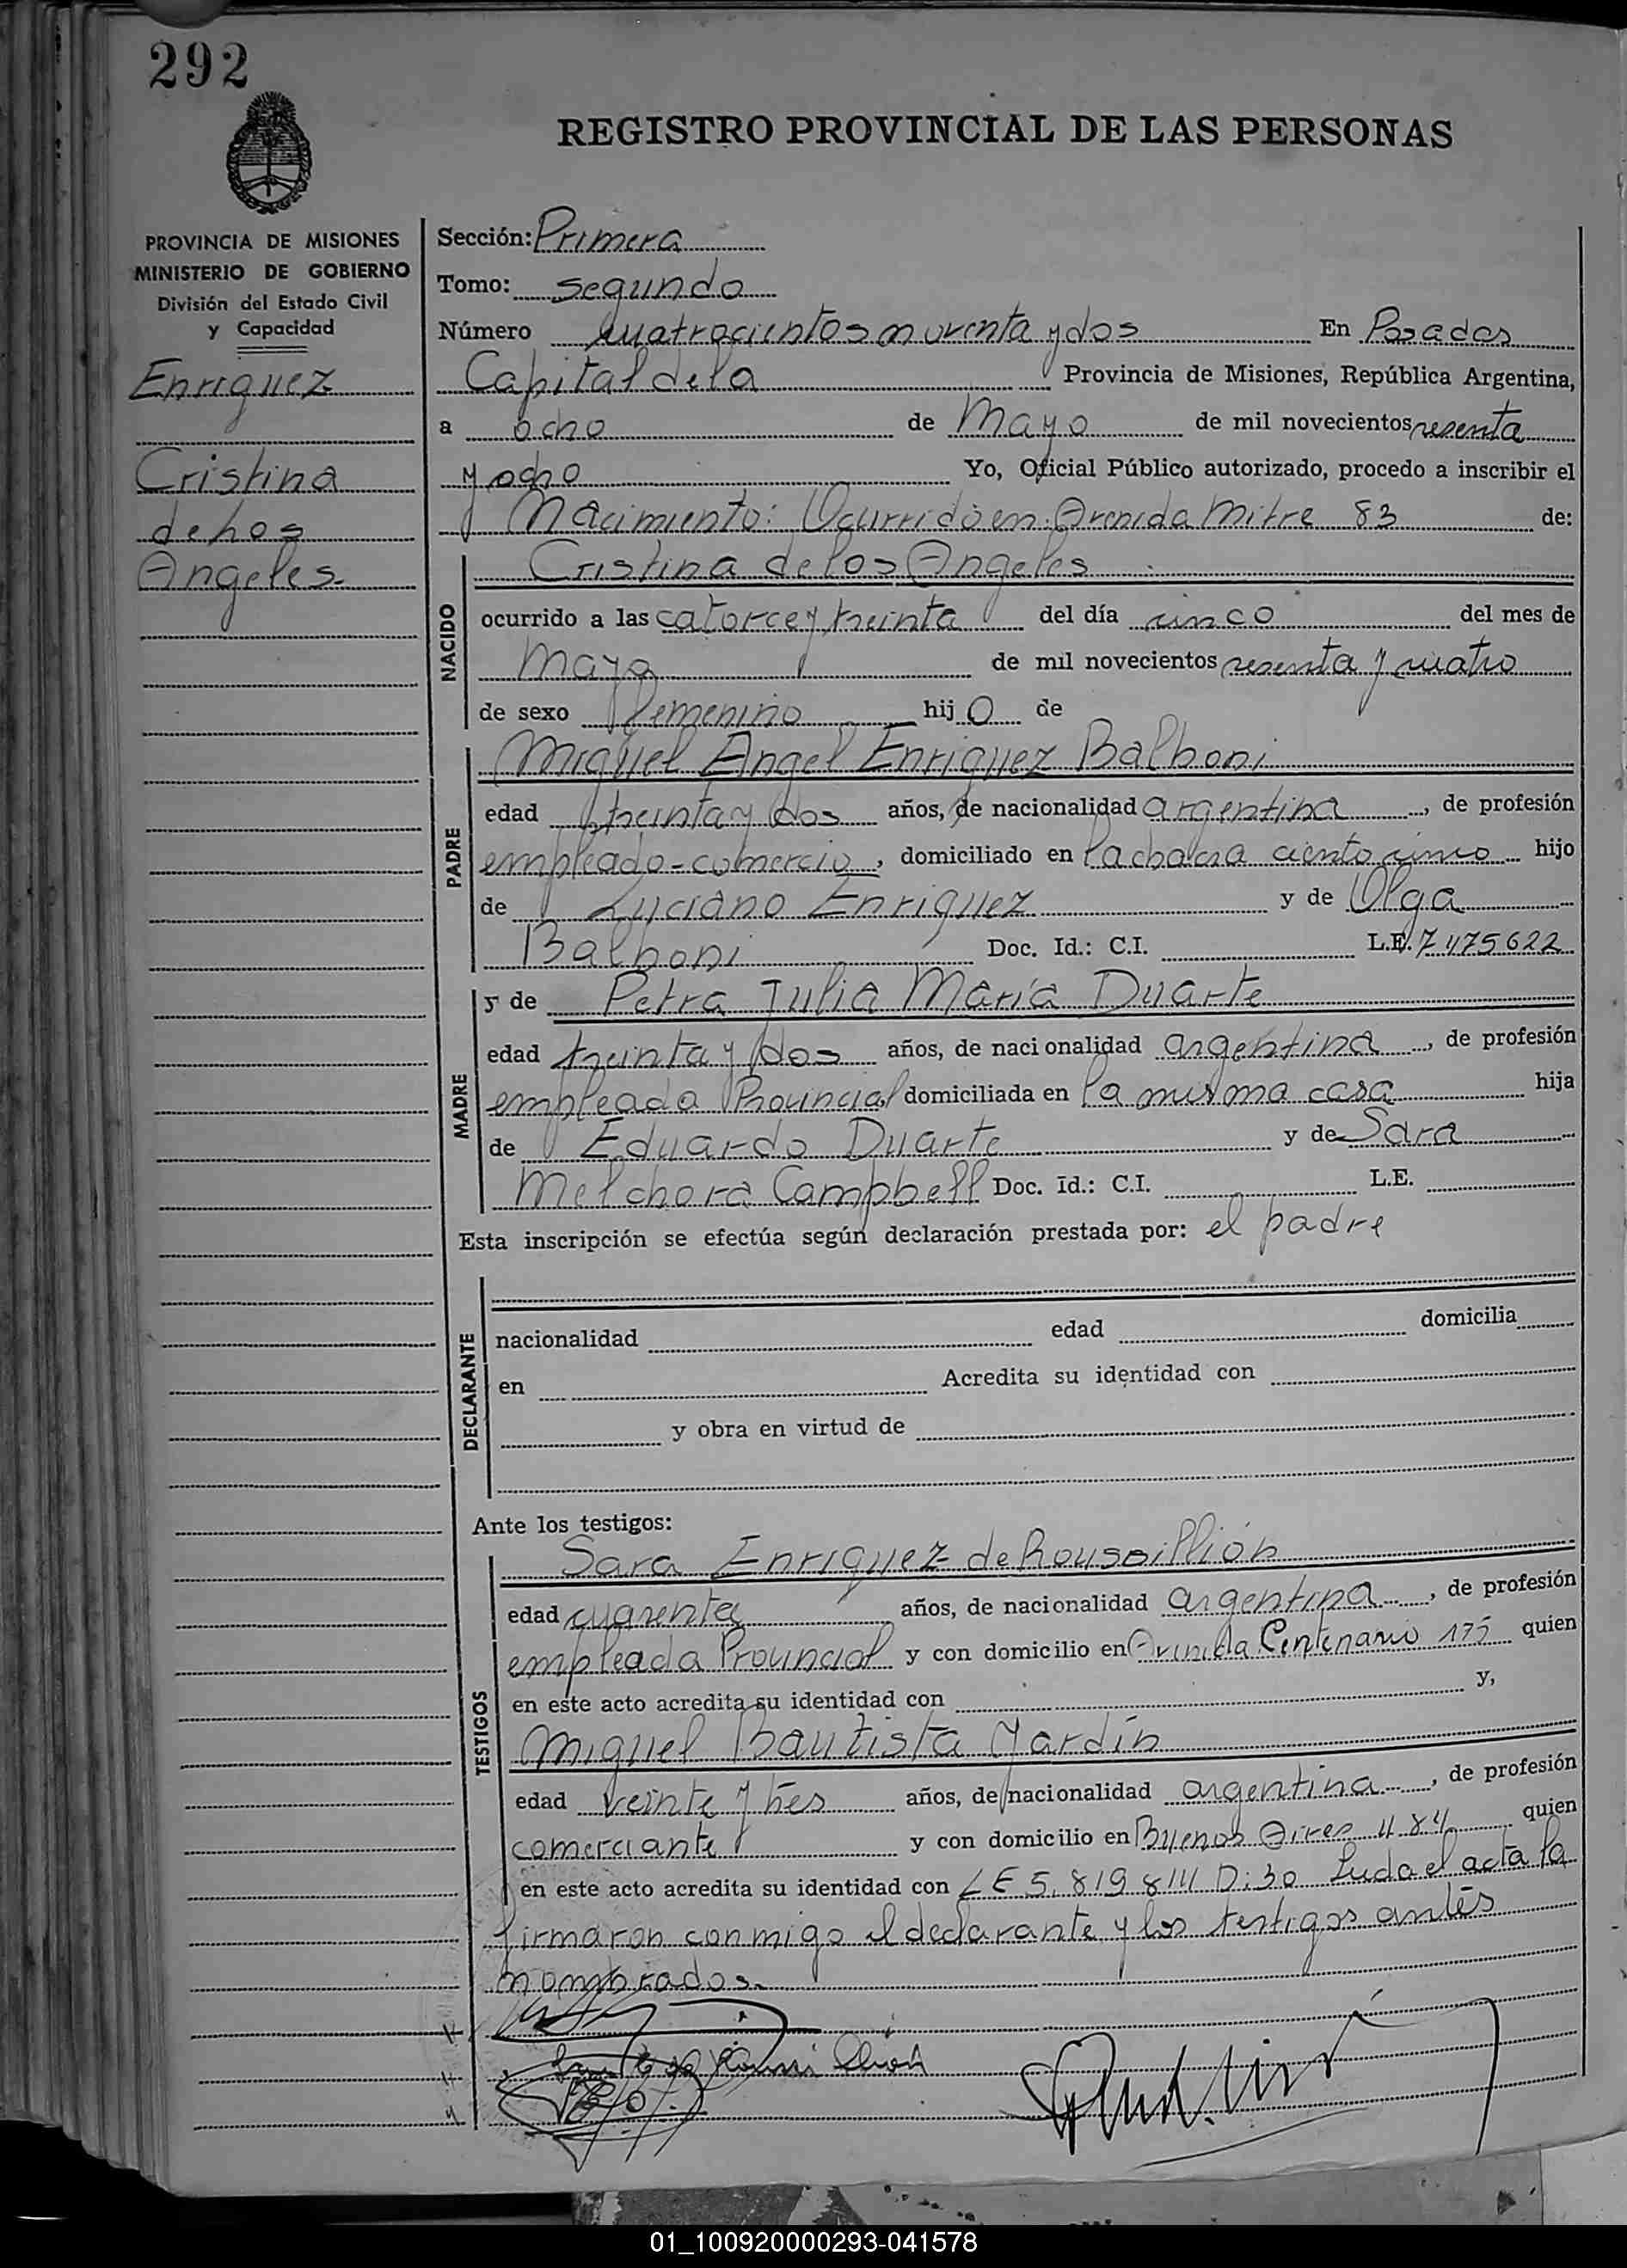 292
REGISTRO PROVINCIAL DE LAS PERSONAS
PROVINCIA DE MISIONES
MINISTERIO DE GOBIERNO
División del Estado Civil
y Capacidad
Enriquez
Cristina
de Los
Angeles.
Sección: Primera
Tomo: segundo
Número cuatrocientos noventa y dos En Posadas
Capital de la Provincia de Misiones, República Argentina,
a ocho de Mayo de mil novecientos sesenta
y ocho Yo, Oficial Público autorizado, procedo a inscribir el
Nacimiento: Ocurrido en: Avenida Mitre 83 de:
NACIDO
Cristina de los Angeles
ocurrido a las catorce y treinta del día cinco del mes de
Mayo de mil novecientos sesenta y cuatro
de sexo femenino hij o de
PADRE
Miguel Angel Enriquez Balboni
edad treinta y dos años, de nacionalidad argentina, de profesión
empleado-comercio, domiciliado en la chacra ciento cinco hijo
de Luciano Enriquez y de Olga
Balboni Doc. Id.: C.I. L.E. 7475622
MADRE
y de Petra Julia María Duarte
edad treinta y dos años, de nacionalidad argentina, de profesión
empleada Provincial domiciliada en la misma casa hija
de Eduardo Duarte y de Sara
Melchora Campbell Doc. Id.: C.I. L.E.
Esta inscripción se efectúa según declaración prestada por: el padre
DECLARANTE
nacionalidad edad domicilia
en Acredita su identidad con
y obra en virtud de
Ante los testigos:
TESTIGOS
Sara Enriquez de Roussillión
edad cuarenta años, de nacionalidad argentina, de profesión
empleada Provincial y con domicilio en Avenida Centenario 175 quien
en este acto acredita su identidad con y,
Miguel Bautista Yardín
edad veinte y tres años, de nacionalidad argentina, de profesión
comerciante y con domicilio en Buenos Aires 484 quien
en este acto acredita su identidad con LE 5.819 814 D:30 Leída el acta la
firmaron conmigo el declarante y los testigos antes
nombrados.
01_100920000293-041578